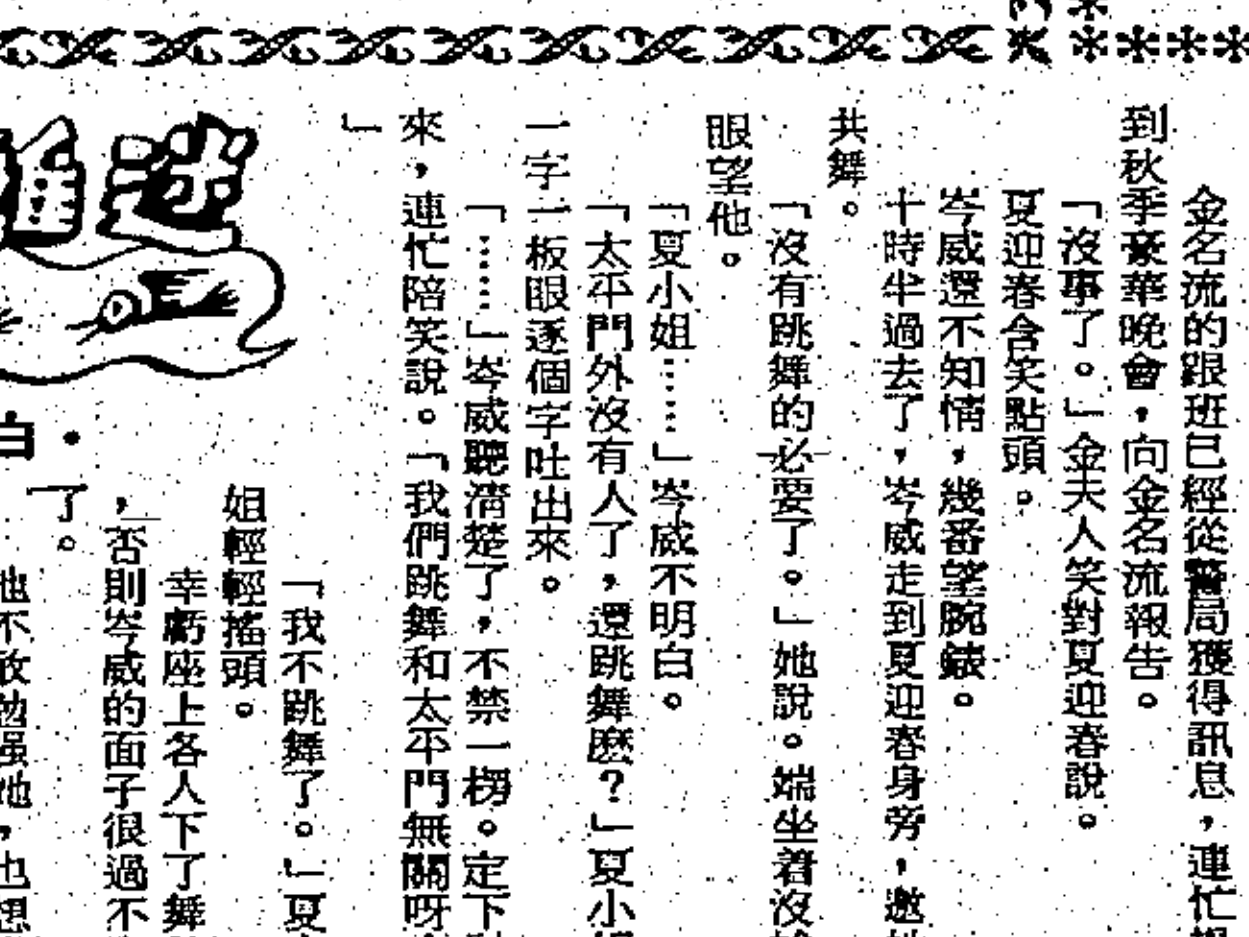 金名流的跟班已經從警局獲得訊息，連忙
到秋季豪華晚會，向金名流報告。
「沒事了。」金夫人笑對夏迎春說。
夏迎春含笑點頭。
岑威還不知情，幾番望腕錶。
十時半過去了，岑威走到夏迎春身旁，邀
共舞。
「沒有跳舞的必要了。」她說。端坐着沒
眼望他。
「夏小姐……」岑威不明白。
「太平門外沒有人了，還跳舞麼？」夏小
一字一板眼逐個字吐出來。
「……」岑威聽清楚了，不禁一楞。定下
來，連忙陪笑說。「我們跳舞和太平門無關呀
」
「我不跳舞了。」夏
姐輕輕搖頭。
幸虧座上各人下了舞
，否則岑威的面子很過不
了。
他不敢勉强她，也想
迷
白・